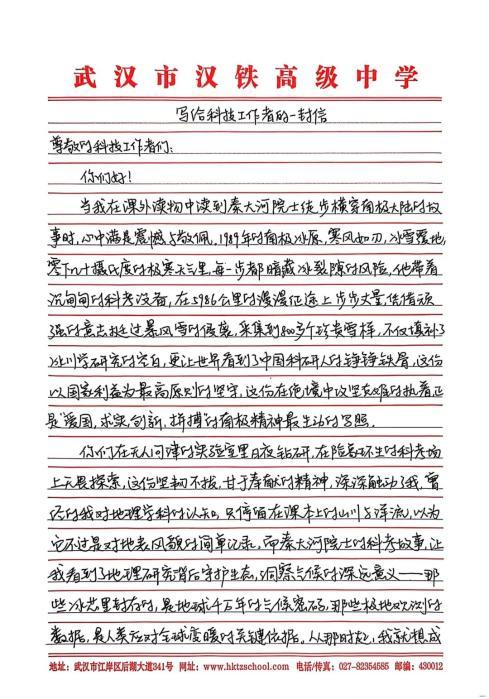 武汉市汉铁高级中学
写给科技工作者的一封信
尊敬的科技工作者们:
你们好!
当我在课外读物中读到秦大河院士徒步横穿南极大陆的故
事时,心中满是震撼与敬佩,1989年的南极冰原,寒风如刀,冰雪覆地,
零下几十摄氏度的极寒天气里,每一步都暗藏冰裂隙的风险,他带着
沉甸甸的科考设备,在5986公里的漫漫征途上步步丈量,凭借顽
强的意志挺过暴风雪的侵袭,采集到800多个珍贵雪样,不仅填补了
冰川学研究的空白,更让世界看到了中国科研人的铮铮铁骨,这份
以国家利益为最高原则的坚守,这份在绝境中攻坚克难的执着正
是“爱国,求实,创新,拼搏”的南极精神最生动的写照.
你们在无人问津的实验室里日夜钻研,在险象环生的科考场
上无畏探索,这份坚韧不拔,甘于奉献的精神,深深触动了我,曾
经的我对地理学科的认知,只停留在课本上的山川与洋流,以为
它不过是对地表风貌的简单记录,而秦大河院士的科考故事,让
我看到了地理研究背后守护生态,洞察气候的深远意义——那
些冰芯里封存的,是地球千万年的气候密码,那些极地吹测的
数据,是人类应对全球变暖的关键依据.从那时起,我就想成
地址:武汉市江岸区后湖大道341号 网址:www.hktzschool.com 电话/传真:027-82354585 邮编:430012